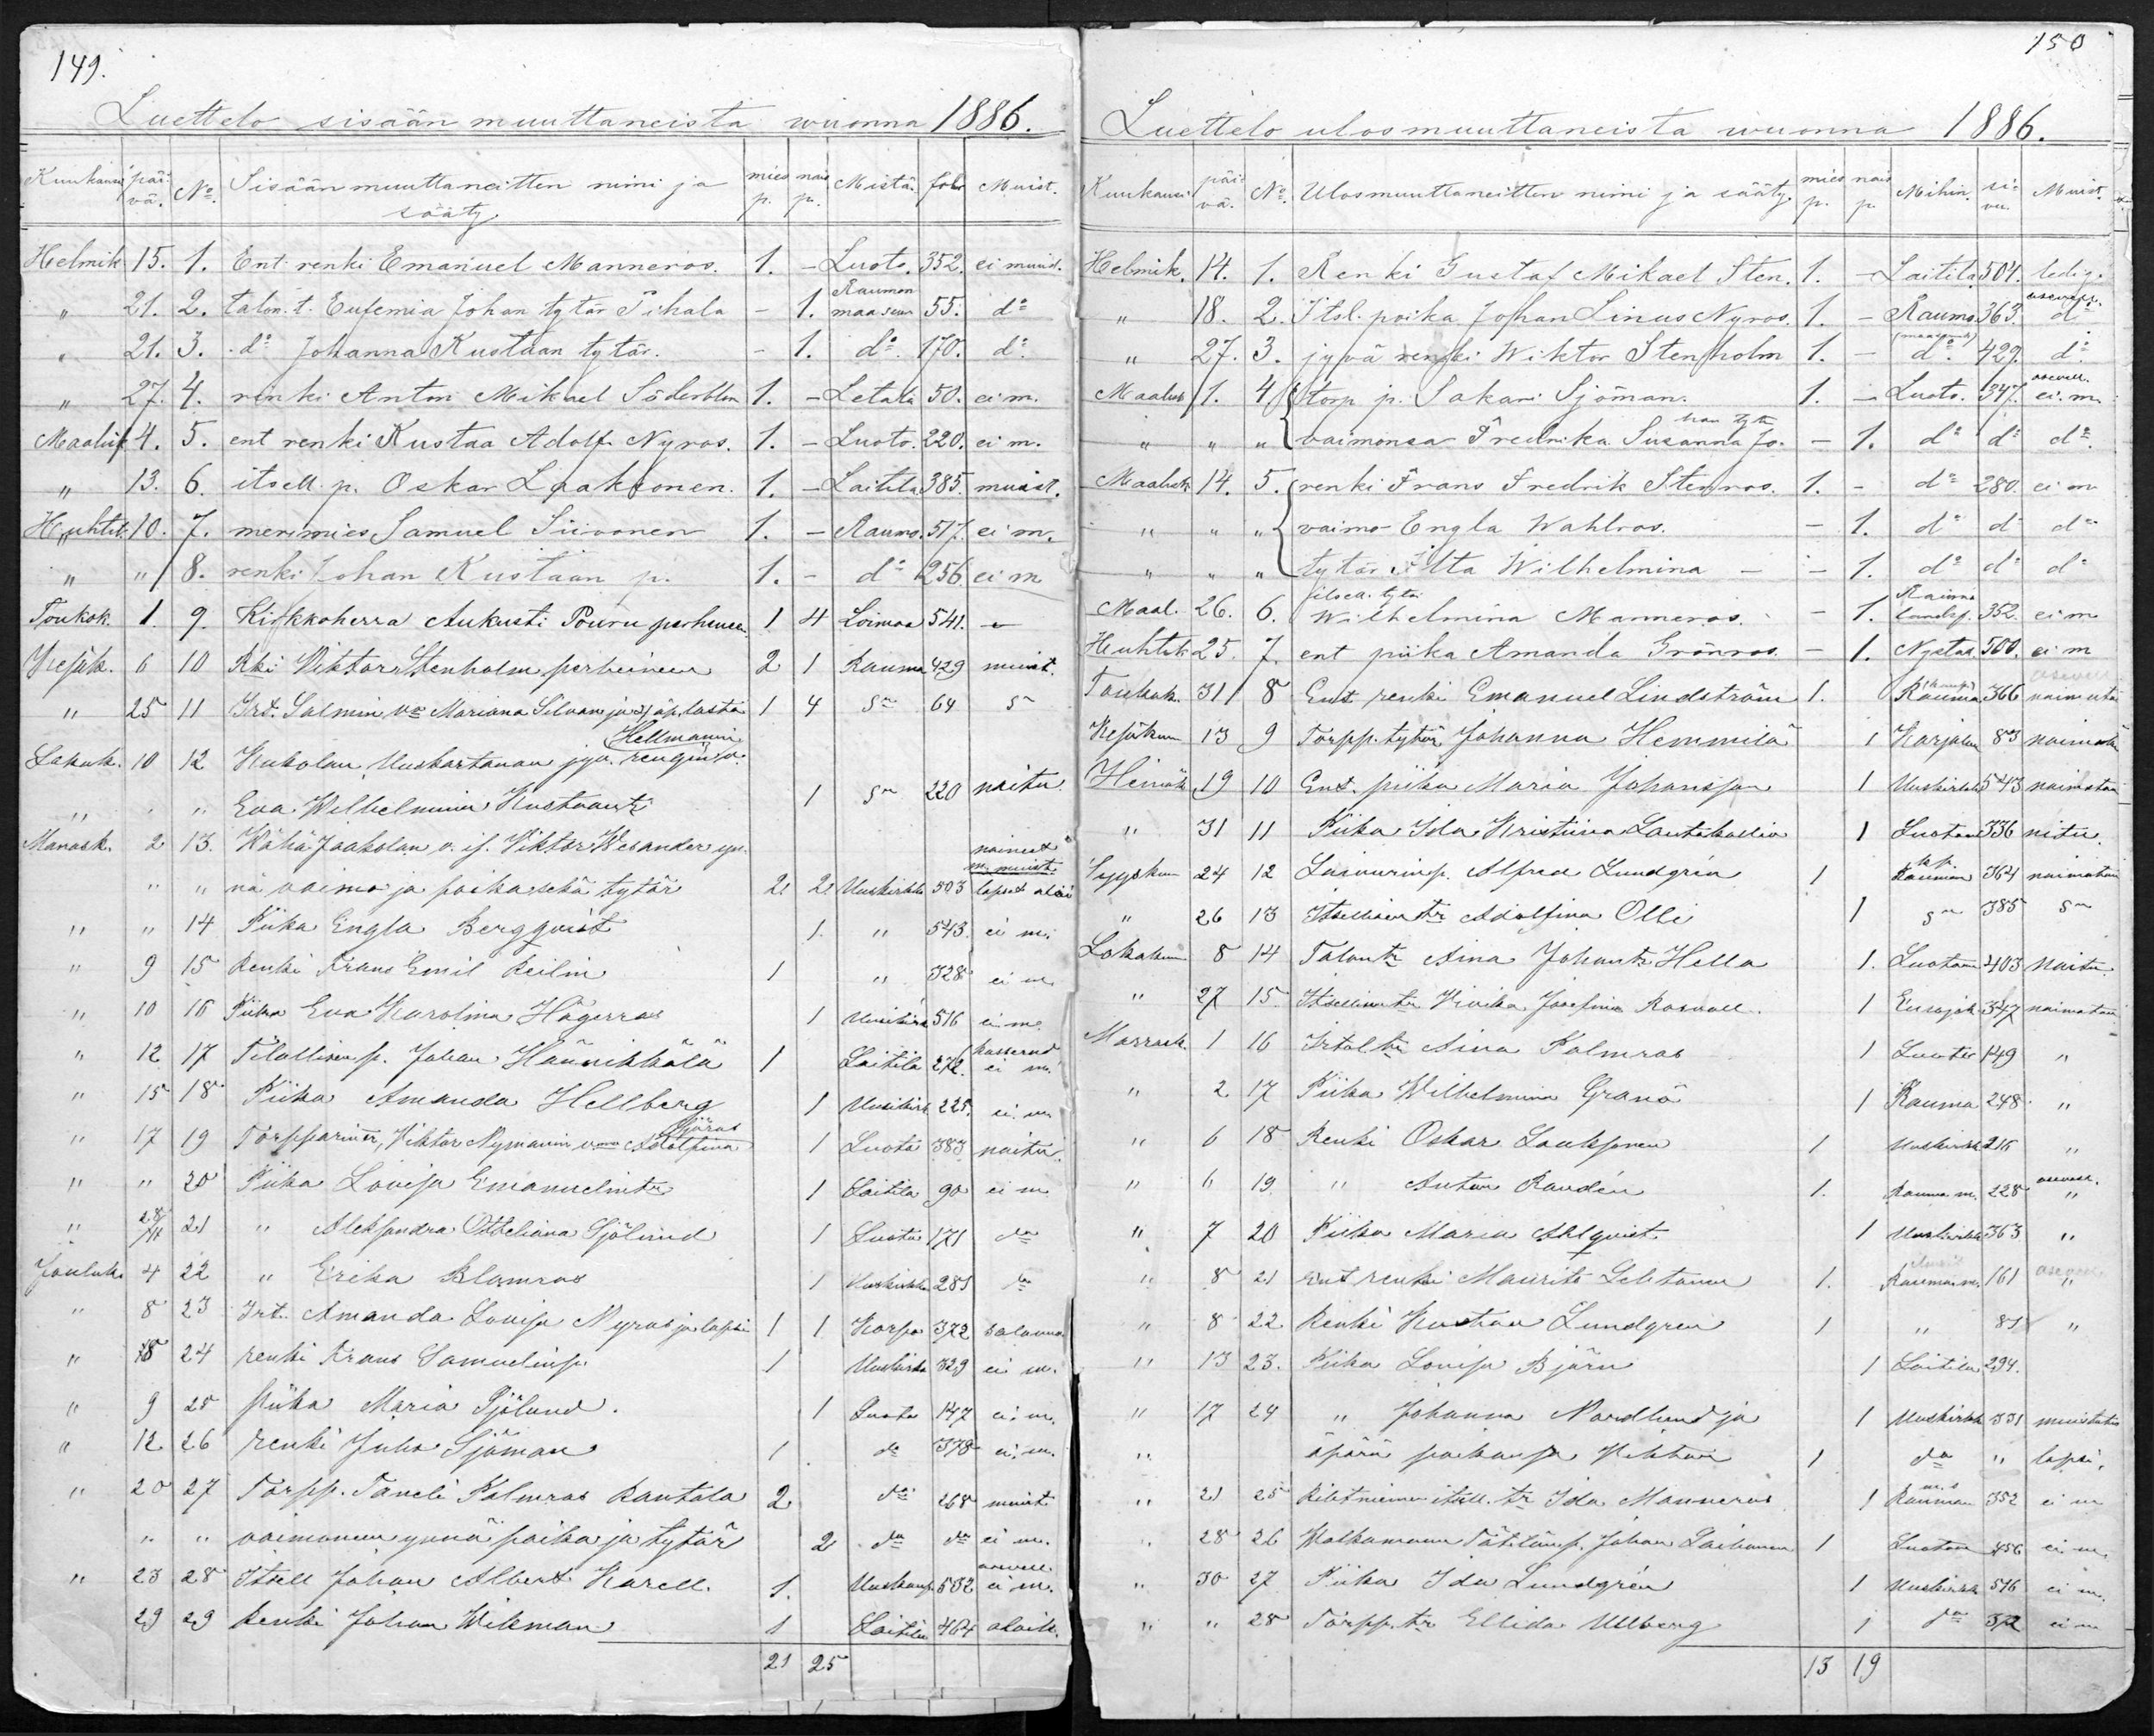 149.
Luettelo sisään muuttaneista wuonna 1886.
Kuukausi päivä. No. Sisäänmuuttaneitten nimi ja sääty. miesp. naisp. Mistä. folio Muist.
Helmik 15. 1. Ent. renki Emanuel Manneros. 1. - Luoto. 352. ei muist.
" 21. 2. talon. t. Eufemia Johan tytär Pihala - 1. Rauman maaseur 55. do
" 21. 3. do Johanna Kustaan tytär. - 1. do. 170. do.
" 27. 4. renki Anton Mikael Söderblom 1. - Letala 50. ei m.
Maalisk 4. 5. ent renki Kustaa Adolf Nyros. 1. - Luoto. 220. ei m.
" 13. 6. itsell. p. Oskar Laaksonen. 1. - Laitila 385. muist.
Huhtik. 10. 7. merimies Samuel Siivonen 1. - Raumo. 517. ei m.
" " 8. renki Johan Kustaan p. 1. - do 256 ei m
Toukok. 1. 9. Kirkkoherra Aukusti Pouru perheineen 1 4 Loimaa 541. -
Kesäk. 6 10 Rki Viktor Stenholm perheineen 2 1 Rauma 429 muist.
" 25 11 Irt. Salmin vo Mariana Silvan ja 3 äp. lasta 1 4 64
Hellmanin
Lokak. 10 12 Kukolan Uuskartanon jyv. rengin v.
" " " Eva Wilhelmina Kustaantr 1 220 naitu.
Marrask. 2 13. Wähä Jaakolan v. is. Viktor Vesander yn-
" " nä vaimo ja poika sekä tytär 2 2 Uuskirkko 503 lapset
" " 14 Piika Engla Bergqvist 1. " 543. ei m.
" 9 15 Renki Frans Emil Keilin 1 " 328 ei m.
" 10 16 Piika Eva Karolina Hägerros 1 Uusikirk 516 ei m.
" 12 17 Tilallisen p. Johan Hännikkälä 1 Laitila 272. ei m.
" 15 18 Piika Amanda Hellberg 1 Uusikirk. 225. ei m
" 17 19 Torpparin, Viktor Nymanin vmo Adolfina Sjöros 1 Luoto 383 naitu.
" " 20 Piika Lovisa Emanuelintr 1 Laitila 90 ei m
" 28/11 21 " Aleksandra Otteliana Sjölund 1 Luoto 171 do
Jouluk. 4 22 " Erika Blomros 1 Uuskirkko 281 do
" 8 23 Irt. Amanda Lovisa Nyros ja lapsi 1 1 Korpo 372
" 8 24 renki Frans Samuelinp. 1 Uuskirko 329 ei m.
" 9 25 piika Maria Sjölund. 1 Luoto 147 ei m.
" 12 26 renki Juho Sjöman 1 do 378 ei m.
" 20 27 Torpp. Taneli Palmros Rantala 2 do 268 muist
" " vaimoneen ynnä poika ja tytär 2 do do ei m.
" 23 28 Itsell Johan Albert Karell. 1. Uuskaup. 532 ei m.
29 29 Renki Johan Wikman 1 Laitila 464 alaik.
21 25
150
Luettelo ulosmuuttaneista wuonna 1886.
Kuukausi. päivä. No. Ulosmuuttaneitten nimi ja sääty. miesp. naisp. Mihin. sivu. Muist.
Helmik. 14. 1. Renki Gustaf Mikael Sten. 1. - Laitila 504. ledig.
" 18. 2. Itsl. poika Johan Linus Nyros. 1. - Raumo. 363. do
" 27. 3. jyvä renki Wiktor Stenholm 1. - do. 429. do.
Maalisk 1. 4 torp p. Sakari Sjöman. 1. - Luoto. 347. ei. m.
" " " vaimonsa Fredrika Susanna Jo- han tytr - 1. do do do.
Maalisk. 14. 5. renki Frans Fredrik Stenros. 1. - do 280. ei m
" " " vaimo Engla Wahlros. - 1. do do do
" " " tytär Ilta Wilhelmina - - 1. do do do
Maal. 26. 6. itsell. tytär Wilhelmina Manneros. - 1. Raumo landsf. 352. ei m
Huhtik 25. 7. ent piika Amanda Grönros. - 1. Nystad. 500. ei m
Toukok. 31 8 Ent renki Emanuel Lindström 1. Rauma 366 naimatoin
Kesäkuu 13 9 Torpp. tytär Johanna Hemmilä 1 Karjalan 83 naimatoin
Heinäk 19 10 Ent. piika Maria Johansson 1 Uuskirkko 543 naimatoin
" 31 11 Piika Ida Kristiina Lautakallio 1 Luotoon 336
Syyskuu 24 12 Laivurinp. Alfred Lundgrén 1 Rauman 364 naimatoin
" 26 13 Itsellisentr Adolfina Olli 1 385
Lokakuu 8 14 Talontr Aina Johantr Hella 1. Luotoon 403 Naitu
" 27 15. Itsellisentr Viivika Josefina Rosvall. 1 Eurajok. 347 naimatoin
Marrask. 1 16 Irtol tr Aina Palmros 1 Luoto 149 "
" 2 17 Piika Wilhelmina Granö 1 Rauma 248. "
" 6 18 Renki Oskar Lauksonen 1 Uuskirkko 216 "
" 6 19 " Anton Randén 1. Rauma m. 228 "
" 7 20 Piika Maria Ahlqvist 1 Uuskirkko 363 "
" 8 21 Ent renki Maurits Lehtonen 1. Rauma m. 161 "
" 8 22 Renki Kustaa Lundgren 1 " 81 "
" 13 23. Piika Lovisa Björn 1 Laitila 294.
" 17 24 " Johanna Nordlund ja 1 Uuskirkko 331
" äpärä poikansa Vihtori 1 do " lapsi.
" 21 25 itsell. tr Ida Manneros 1 Rauman 352 ei m
" 28 26 Johan Laihonen 1 Luotoon 456 ei m.
" 30 27 Piika Ida Lundgrén 1 Uuskirkk. 516 ei m.
" " 28 Torpp. tr Ellida Ullberg 1 do 372 ei m
13 19